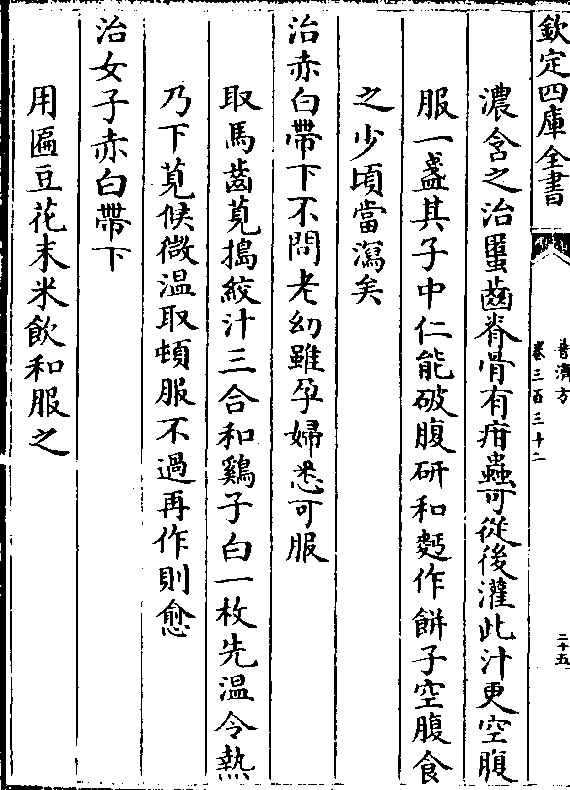 欽定四庫全書
普濟方
卷三百三十二
二十五
濃含之治䘌齒脊骨有疳蟲可從後灌此汁更空腹
服一盞其子中仁能破腹研和麪作餅子空腹食
之少頃當瀉矣
治赤白帶下不問老幼雖孕婦悉可服
取馬齒莧搗絞汁三合和鷄子白一枚先溫令熱
乃下莧候微溫取頓服不過再作則愈
治女子赤白帶下
用匾豆花末米飲和服之